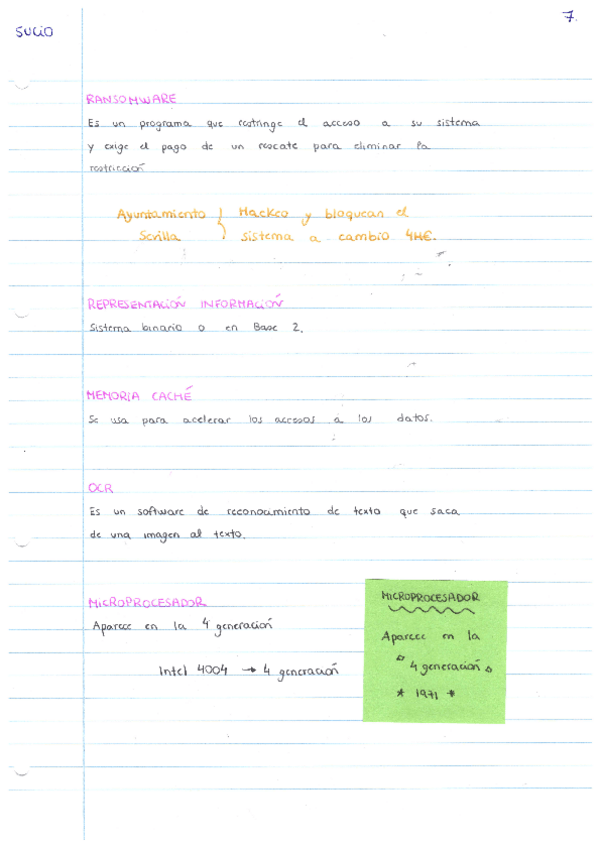 SUCIO
7.
RANSOMWARE
Es un programa que restringe el acceso a su sistema
y exige el pago de un rescate para eliminar la
restricción
Ayuntamiento Hackeo y bloquean el
Sevilla sistema a cambio 4M€.
REPRESENTACIÓN INFORMACIÓN
Sistema binario o en Base 2.
MEMORIA CACHÉ
Se usa para acelerar los accesos a los datos.
OCR
Es un software de reconocimiento de texto que saca
de una imagen al texto.
MICROPROCESADOR
Aparece en la 4 generación
Intel 4004 → 4 generación
MICROPROCESADOR
Aparece en la
4 generación
* 1971 *